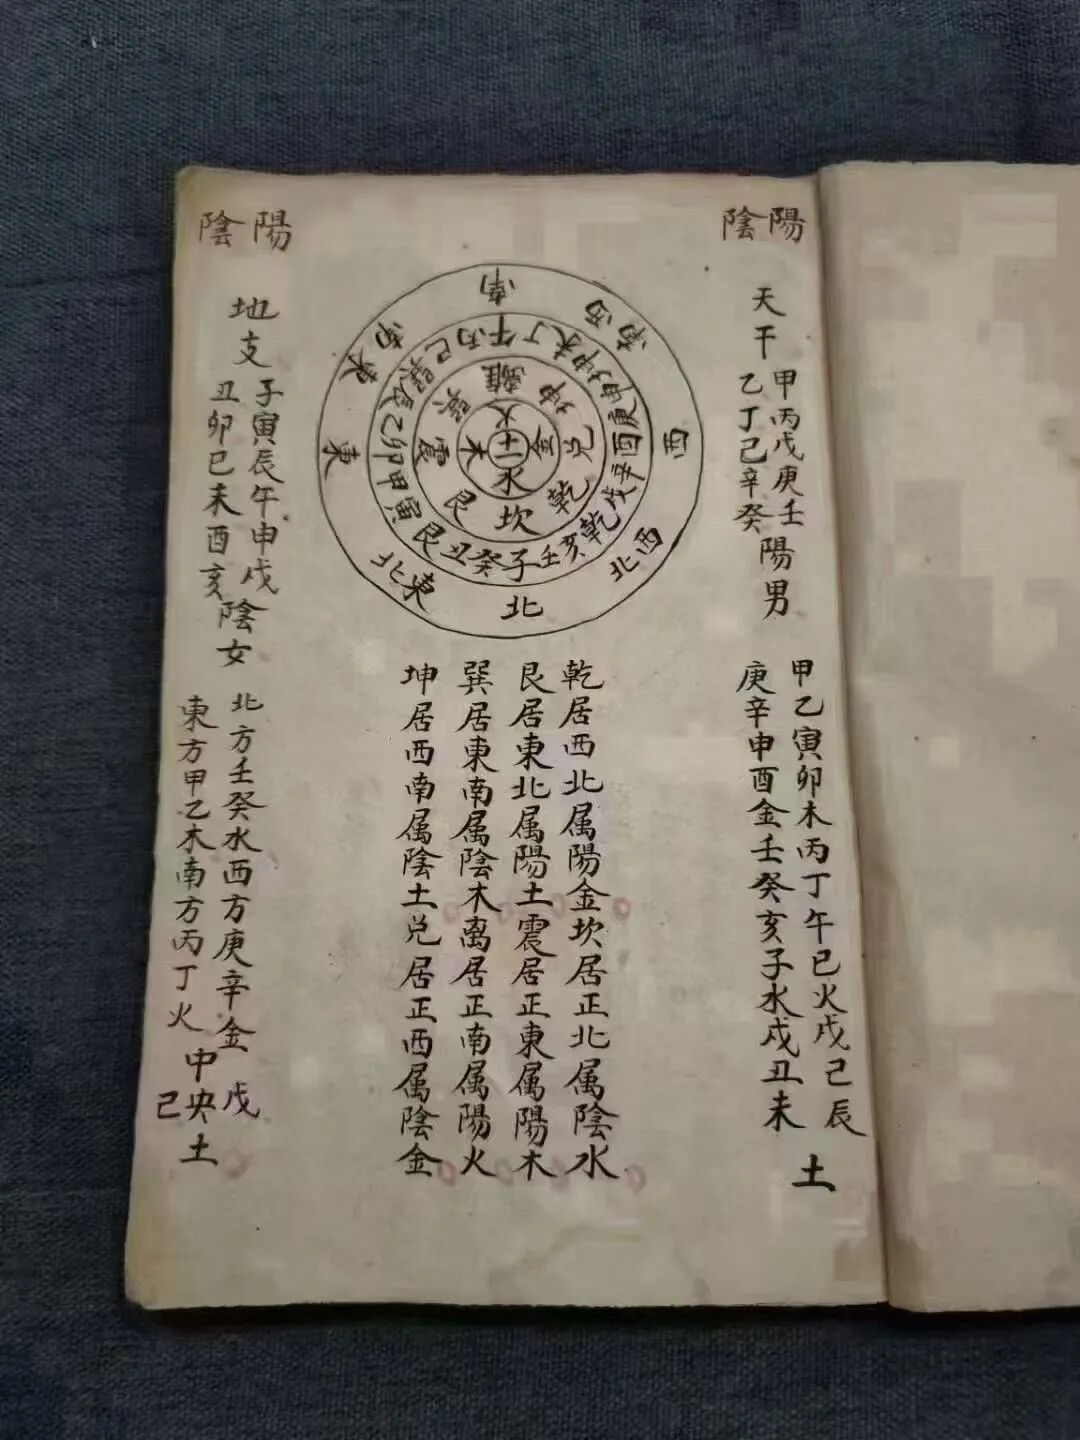 陰陽
天干
甲丙戊庚壬
乙丁己辛癸
陽男
甲乙寅卯木丙丁午巳火戊己辰
庚辛申酉金壬癸亥子水戌丑未
土
南
西南
西
西北
北
東北
東
東南
午丁未坤申庚酉辛戌乾亥壬子癸丑艮寅甲卯乙辰巽巳丙
離坤兑乾坎艮震巽
火金水木
土
乾居西北属陽金坎居正北属陰水
艮居東北属陽土震居正東属陽木
巽居東南属陰木离居正南属陽火
坤居西南属陰土兑居正西属陰金
陰陽
地支
子寅辰午申戌
丑卯巳未酉亥
陰女
北方壬癸水西方庚辛金
東方甲乙木南方丙丁火
戊
中央土
己